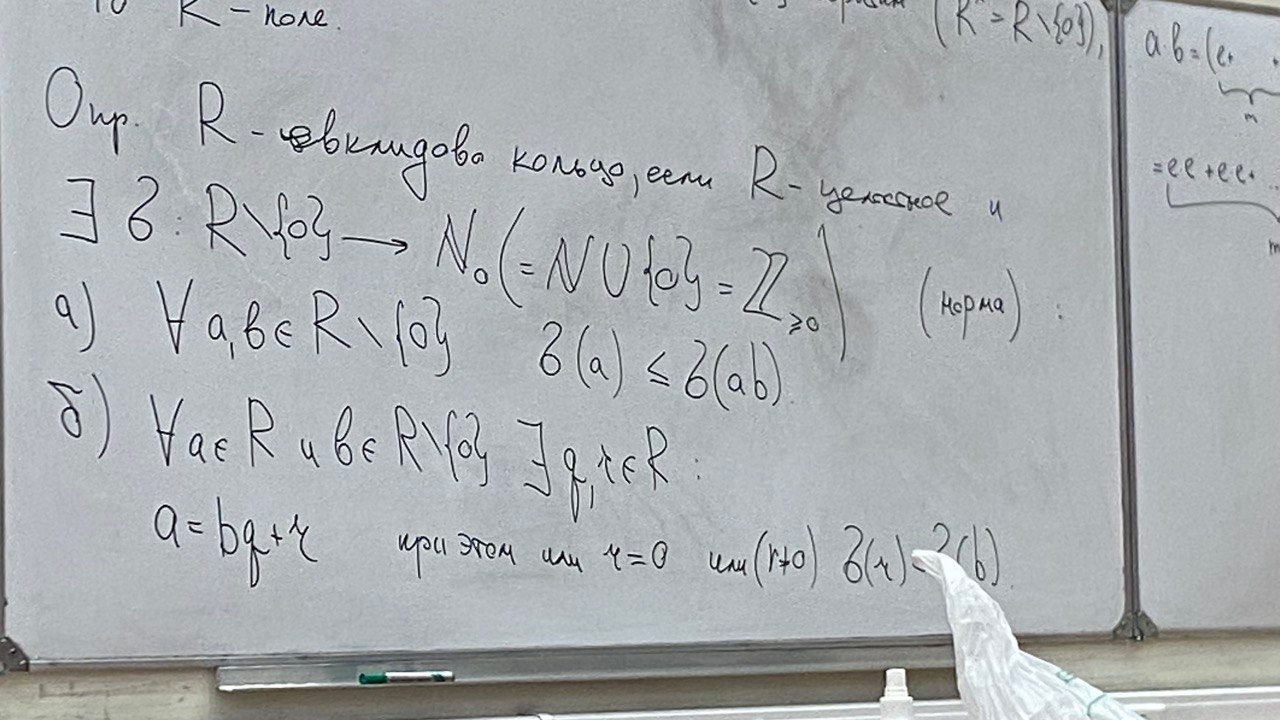 R - поле.
(R* = R\{0}),
Опр. R - евклидово кольцо, если R - целостное и
∃ δ: R\{0} → N₀ (= N ∪ {0} = Z≥0) (норма) :
а) ∀ a, b ∈ R\{0} δ(a) ≤ δ(ab)
б) ∀ a ∈ R и b ∈ R\{0} ∃ q, r ∈ R :
a = bq + r при этом или r = 0 или (r≠0) δ(r) < δ(b).
ab = (e+
m
= ee + ee +